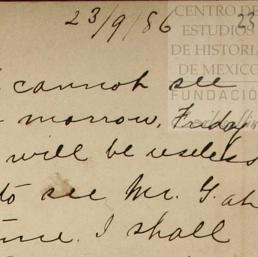 23/9/86
CENTRO DE
ESTUDIOS
DE HISTORIA
DE MEXICO
FUNDACIÓN
cannot see
morrow, Friday
will be useless
to see Mr. G. at
I shall